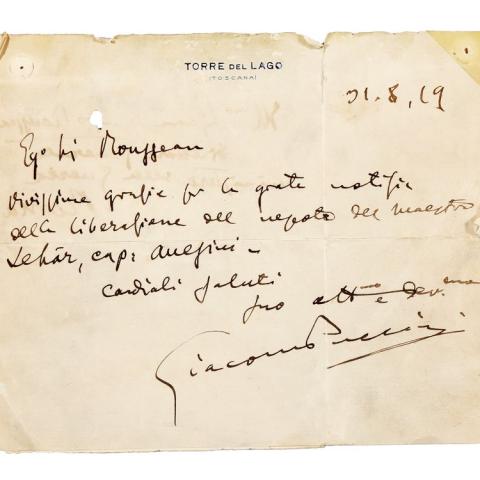 TORRE DEL LAGO
(TOSCANA)
31.8.19
Eg° Si Rousseau
Vivissime grazie per la grata notizia
della liberazione del nepote del maestro
Lehár, cap:
cordiali saluti
suo att^mo e dev.^mo
Giacomo Puccini